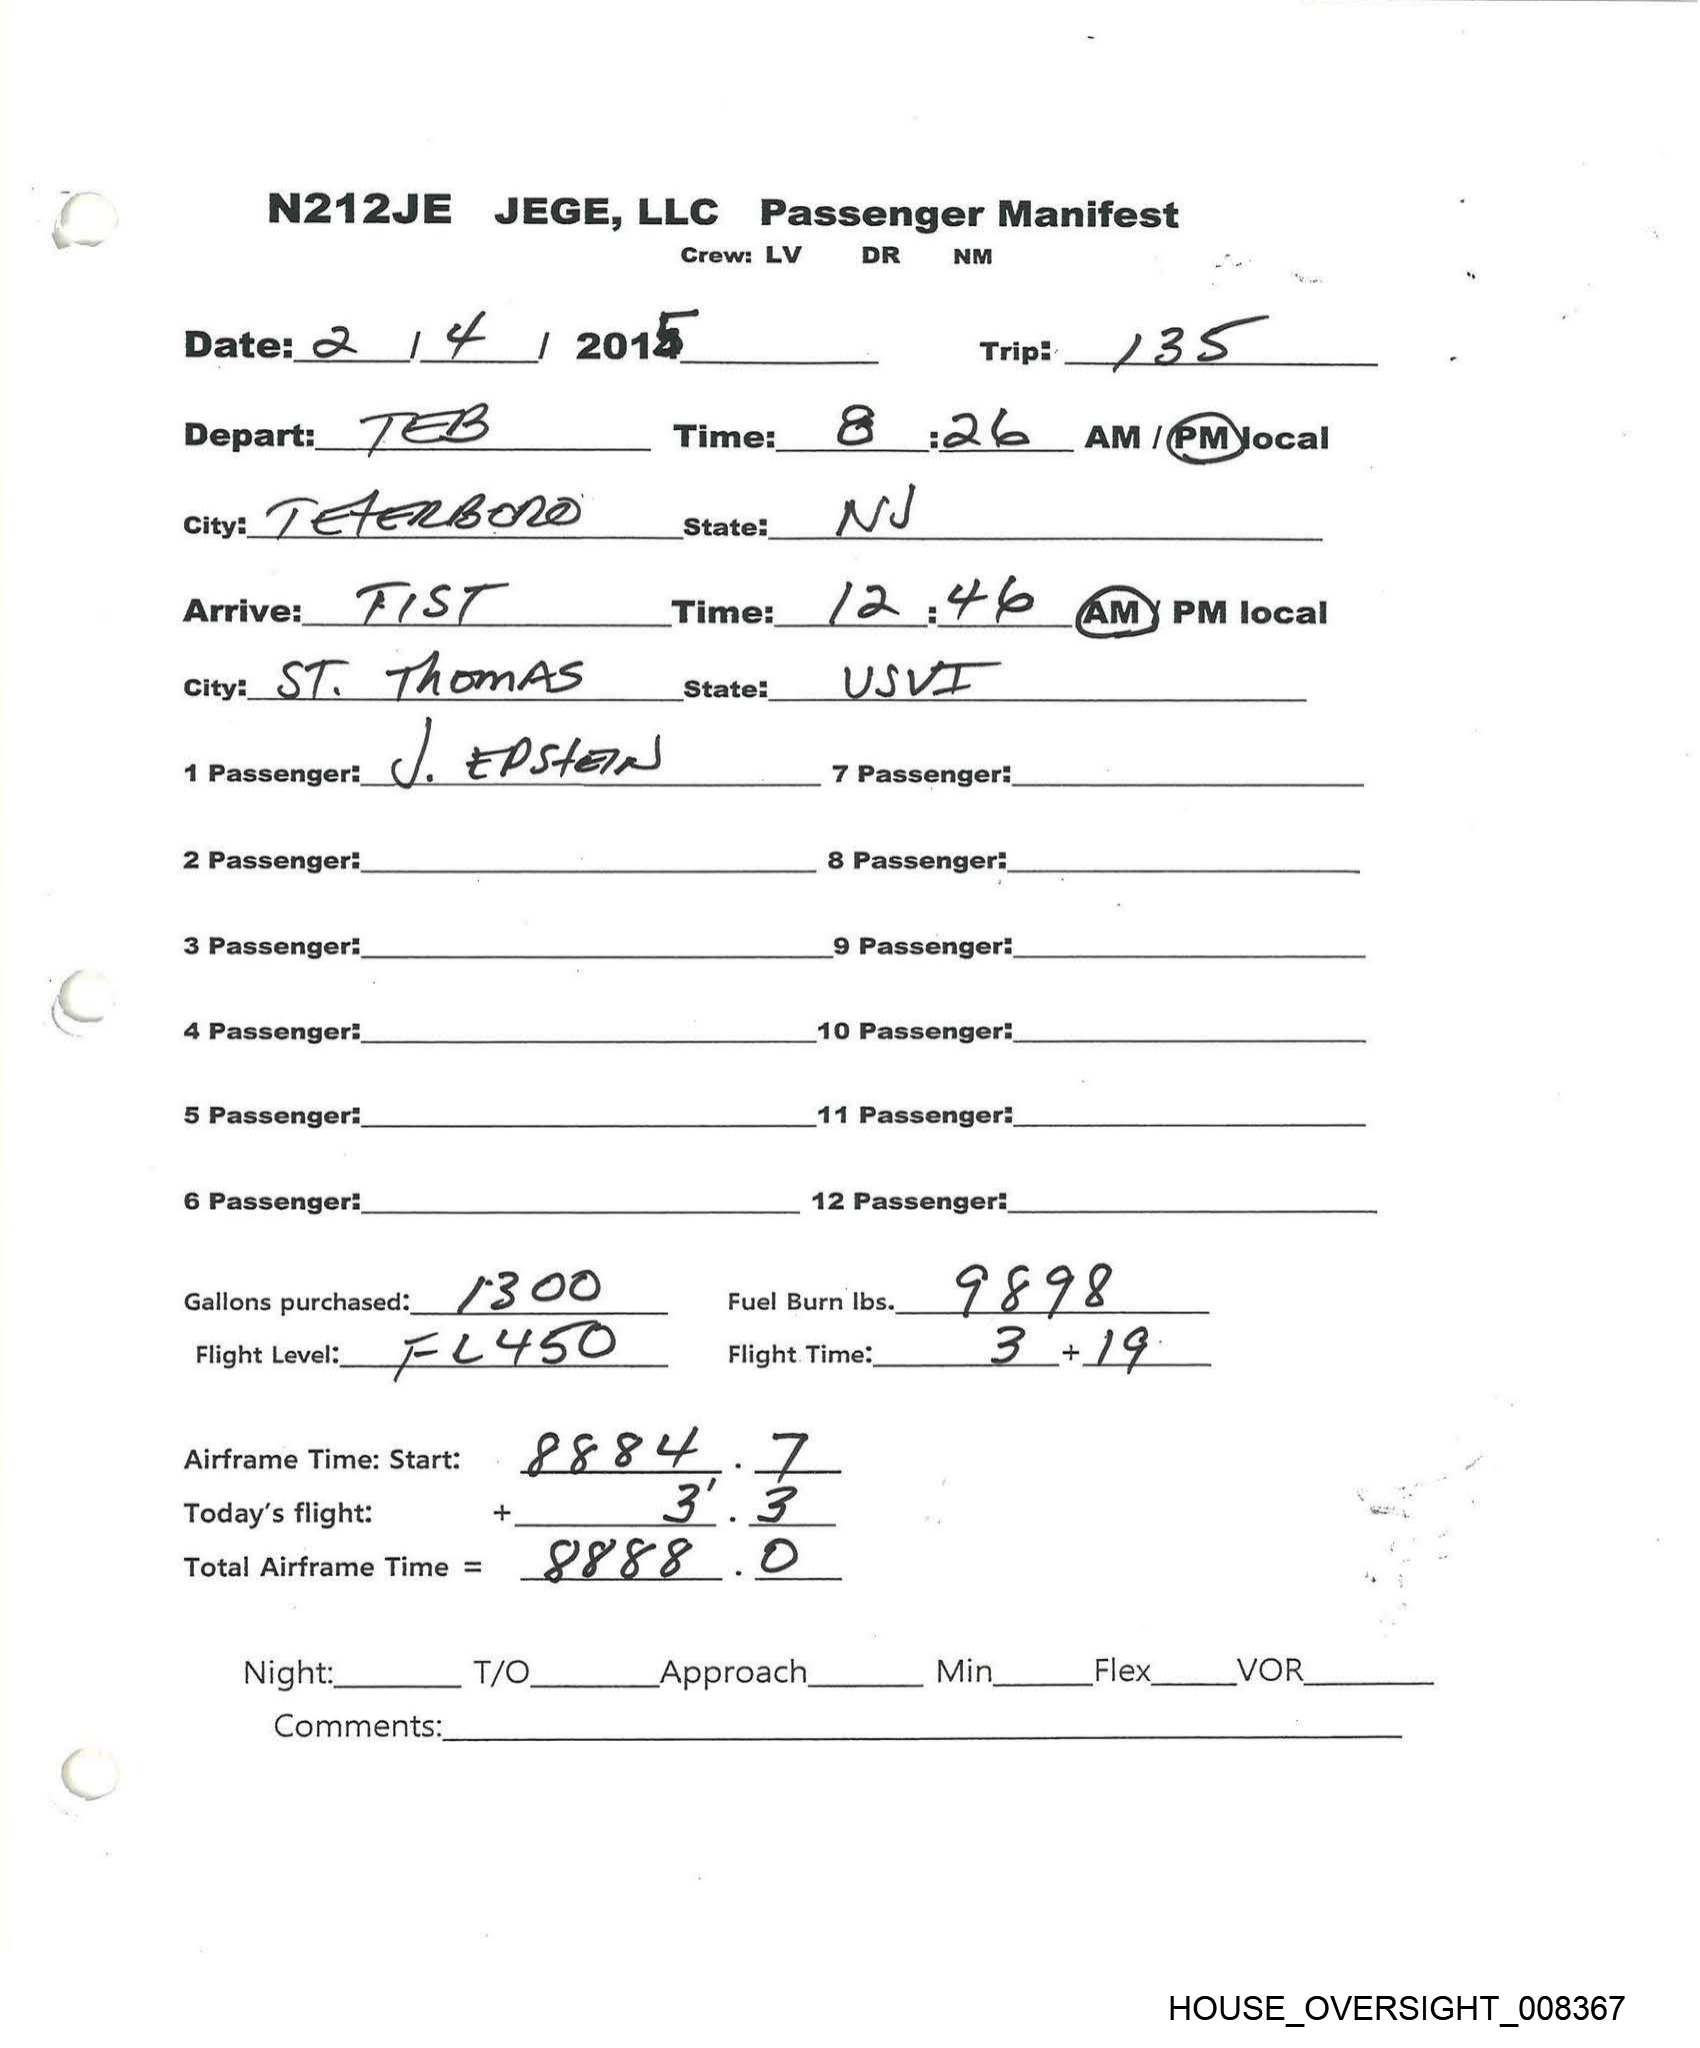 N212JE JEGE, LLC Passenger Manifest
Crew: LV DR NM
Date: 2 / 4 / 2015 Trip: 135
Depart: TEB Time: 8 : 26 AM / PM local
City: TETERBORO State: NJ
Arrive: TIST Time: 12 : 46 AM / PM local
City: ST. ThomAS State: USVI
1 Passenger: J. EPSTEIN 7 Passenger:
2 Passenger: 8 Passenger:
3 Passenger: 9 Passenger:
4 Passenger: 10 Passenger:
5 Passenger: 11 Passenger:
6 Passenger: 12 Passenger:
Gallons purchased: 1300 Fuel Burn lbs. 9898
Flight Level: FL450 Flight Time: 3 + 19
Airframe Time: Start: 8884 . 7
Today's flight: + 3 . 3
Total Airframe Time = 8888 . 0
Night: T/O Approach Min Flex VOR
Comments:
HOUSE_OVERSIGHT_008367